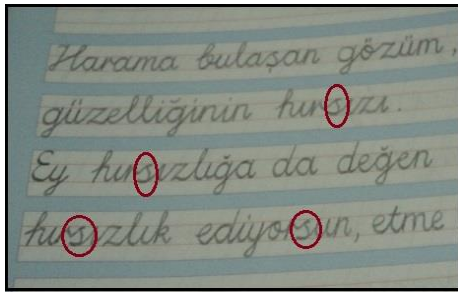 Harama bulaşan gözüm,
güzelliğinin hırsızı.
Ey hırsızlığa da değen
hırsızlık ediyorsun, etme